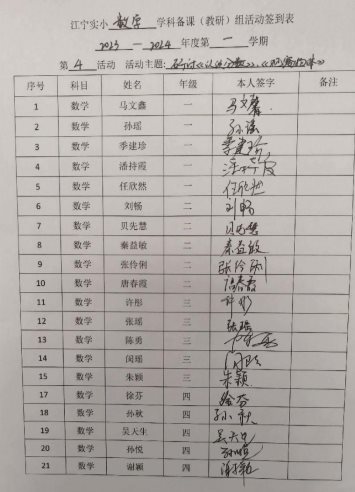 江宁实小 数学 学科备课（教研）组活动签到表
2023 — 2024 年度第 一 学期
第 4 活动 活动主题：研讨《认识分数》、
序号 科目 姓名 年级 本人签字 备注
1 数学 马文鑫 一 马文鑫
2 数学 孙瑶 一 孙瑶
3 数学 季建珍 一 季建珍
4 数学 潘持霞 一
5 数学 任欣然 一 任欣然
6 数学 刘畅 二 刘畅
7 数学 贝先慧 二 贝先慧
8 数学 秦益敏 二 秦益敏
9 数学 张伶俐 二 张伶俐
10 数学 唐春霞 二 唐春霞
11 数学 许彤 三 许彤
12 数学 张瑶 三 张瑶
13 数学 陈勇 三
14 数学 闵瑶 三 闵瑶
15 数学 朱颖 三 朱颖
17 数学 徐芬 四 徐芬
18 数学 孙秋 四 孙秋
19 数学 吴天生 四 吴天生
20 数学 孙悦 四 孙悦
21 数学 谢颖 四 谢颖